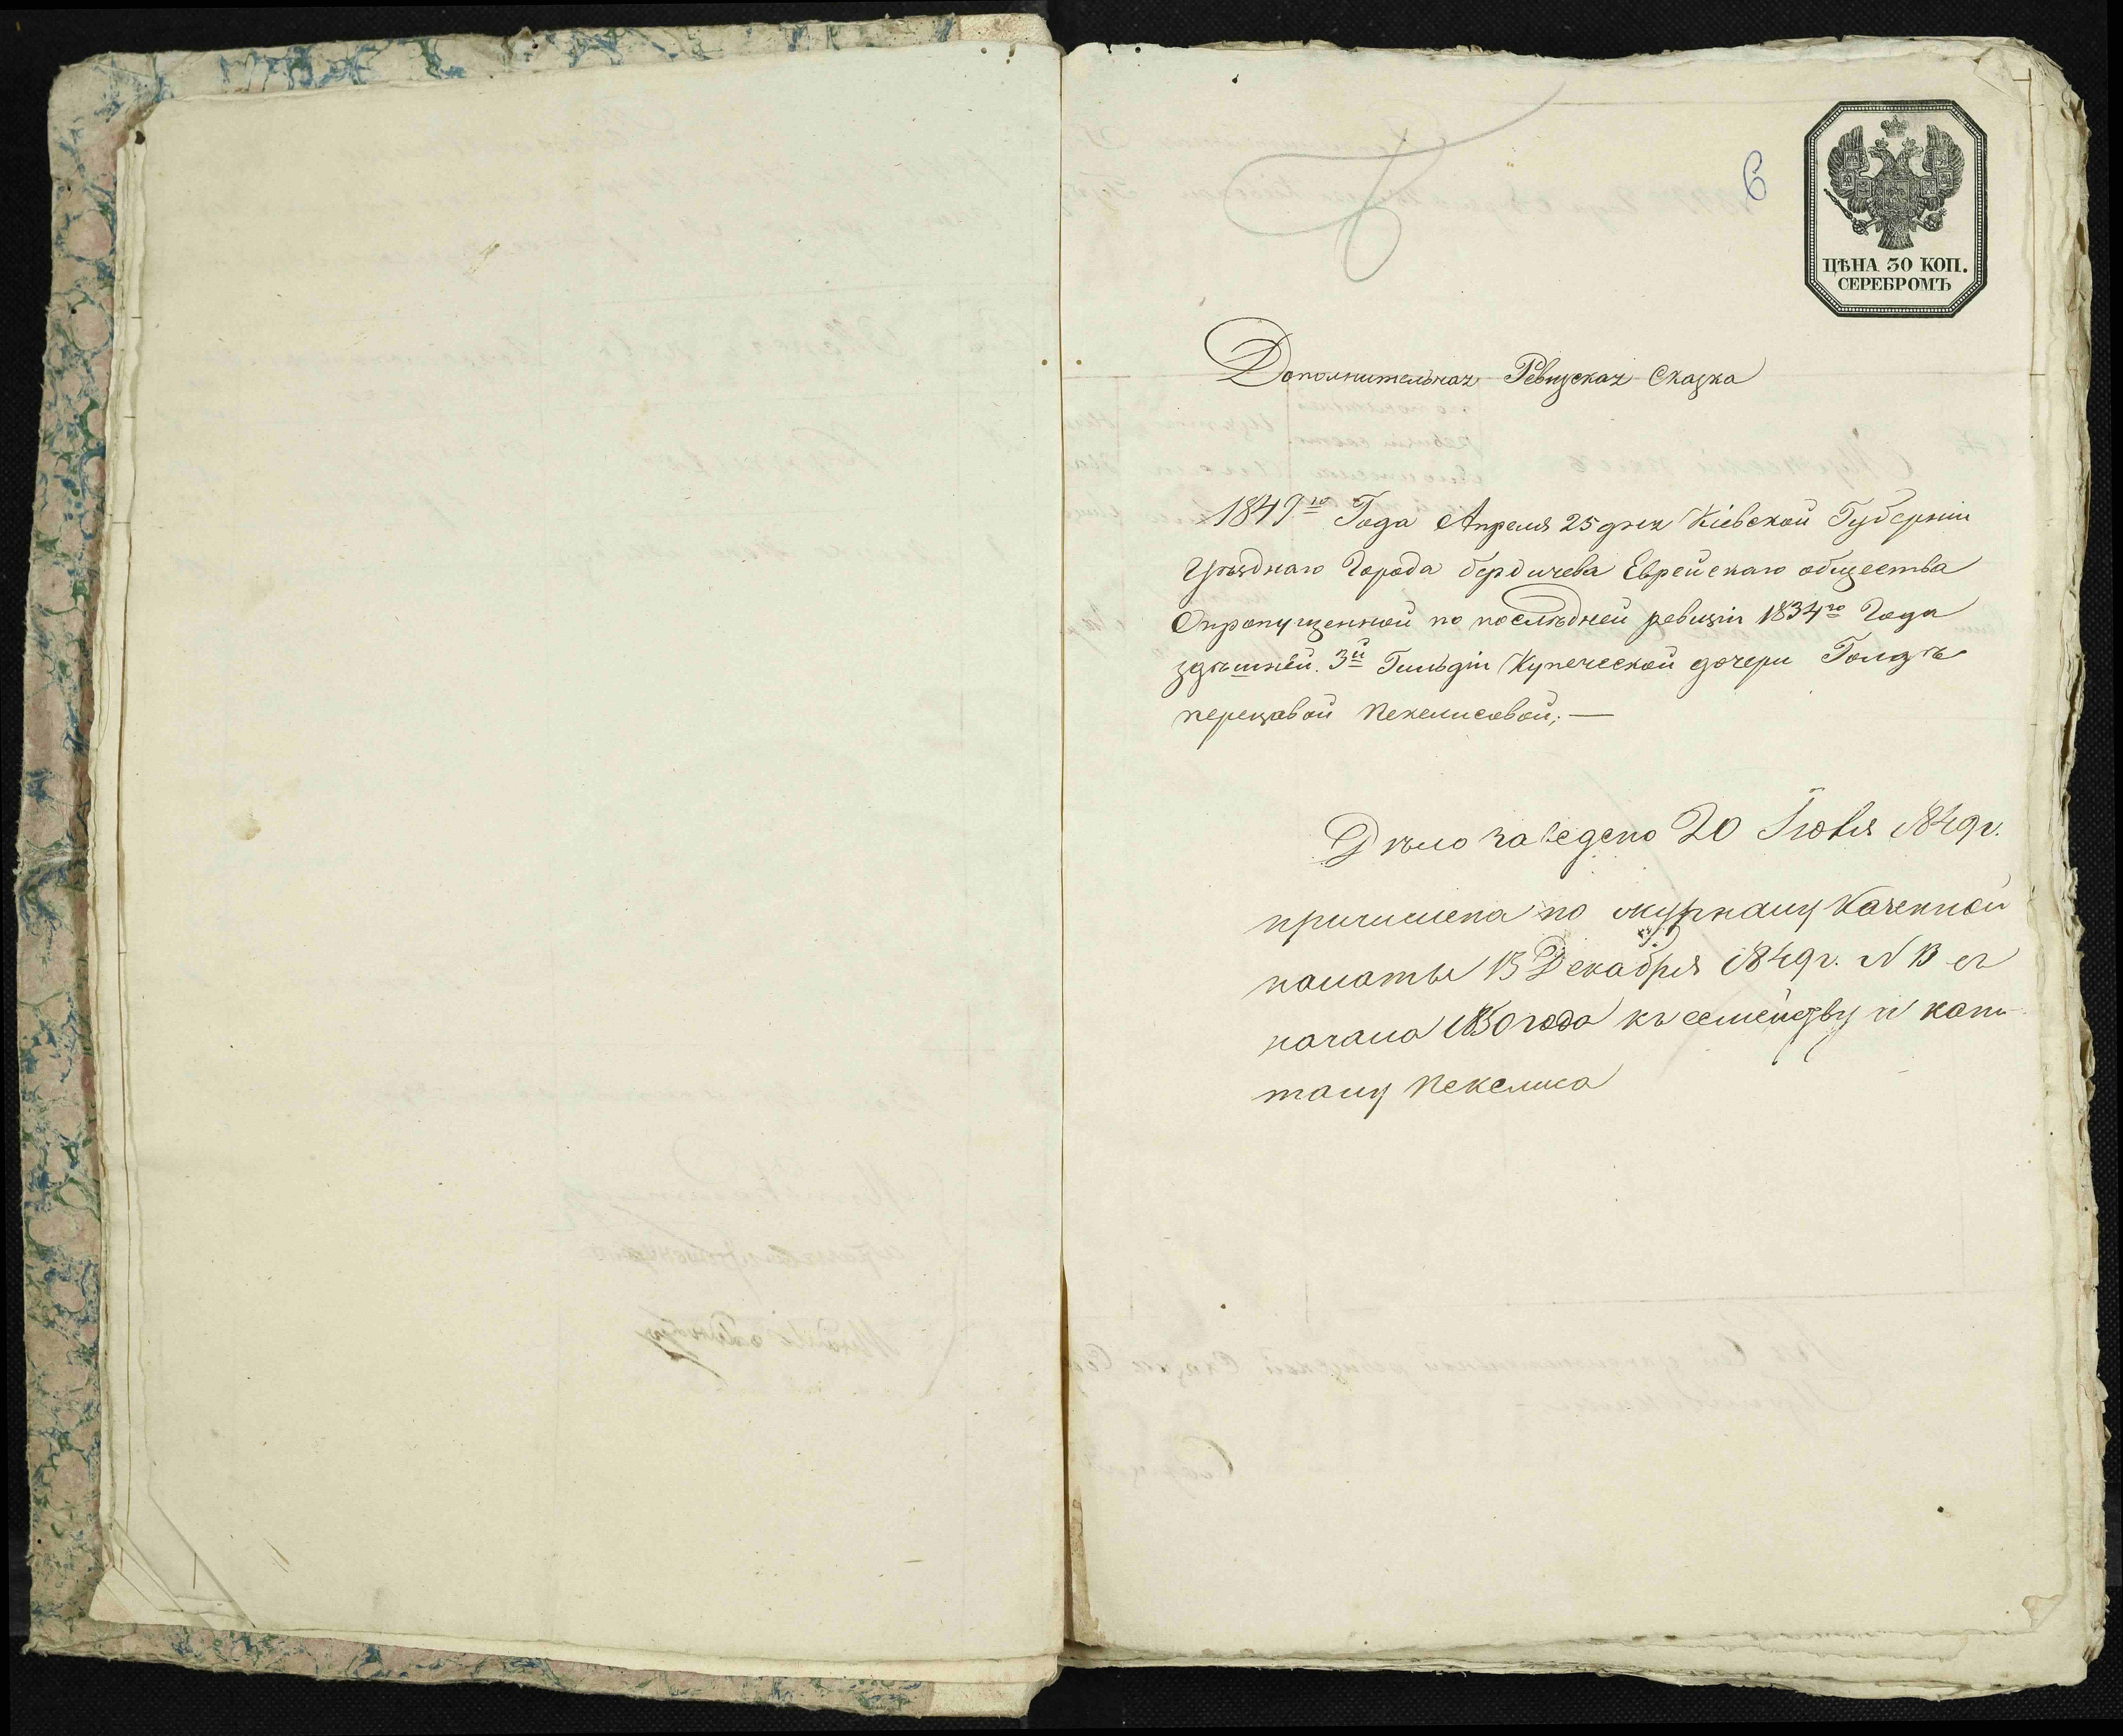 6
ЦѢНА 30 КОП.
СЕРЕБРОМЪ
Дополнительная Ревизская Сказка
1849го Года Апреля 25 дня Кіевской Губерніи
Уѣзднаго Города бердичева Еврейскаго общества
Опропущенной по послѣдней ревизіи 1834го Года
здѣшней 3й Гильдіи Купеческой дочери Голдѣ
перецовой Пекелисовой;—
Дѣло заведено 20 Іювля 1849г.
причислена по журналу Казенной
палаты 13 Декабря 1849г. N 13 съ
начала 1850 года къ семейству и капи-
талу Пекелиса